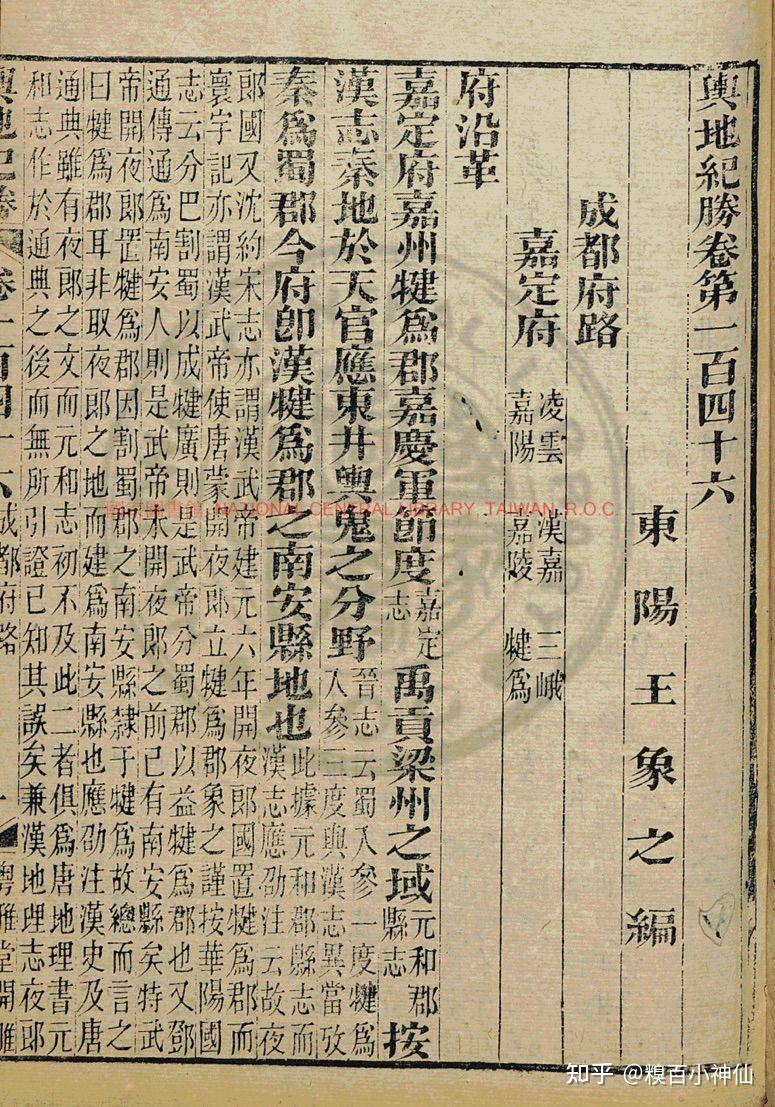 輿地紀勝卷第一百四十六
東陽王象之編
成都府路
嘉定府 凌雲 漢嘉 三峨
嘉陽 嘉陵 犍爲
府沿革
嘉定府嘉州犍爲郡嘉慶軍節度嘉定志禹貢梁州之域元和郡縣志按
漢志秦地於天官應東井輿鬼之分野晉志云蜀入參一度犍爲入參三度與漢志異當攷
秦爲蜀郡今府卽漢犍爲郡之南安縣地也此據元和郡縣志而漢志應劭注云故夜
郎國又沈約宋志亦謂漢武帝建元六年開夜郎國置犍爲郡而
寰宇記亦謂漢武帝使唐蒙開夜郎立犍爲郡象之謹按華陽國
志云分巴割蜀以成犍廣則是武帝分蜀郡以益犍爲郡也又鄧
通傳通爲南安人則是武帝未開夜郎之前已有南安縣矣特武
帝開夜郎置犍爲郡因割蜀郡之南安縣隸于犍爲故總而言之
曰犍爲郡耳非取夜郎之地而建爲南安縣也應劭注漢史及唐
通典雖有夜郎之文而元和志初不及此二者俱爲唐地理書元
和志作於通典之後而無所引證已知其誤矣兼漢地理志夜郎
輿地紀勝 卷一百四十六 成都府路 一 粵雅堂開雕
國家圖書館 NATIONAL CENTRAL LIBRARY, TAIWAN, R.O.C.
知乎 @糗百小神仙